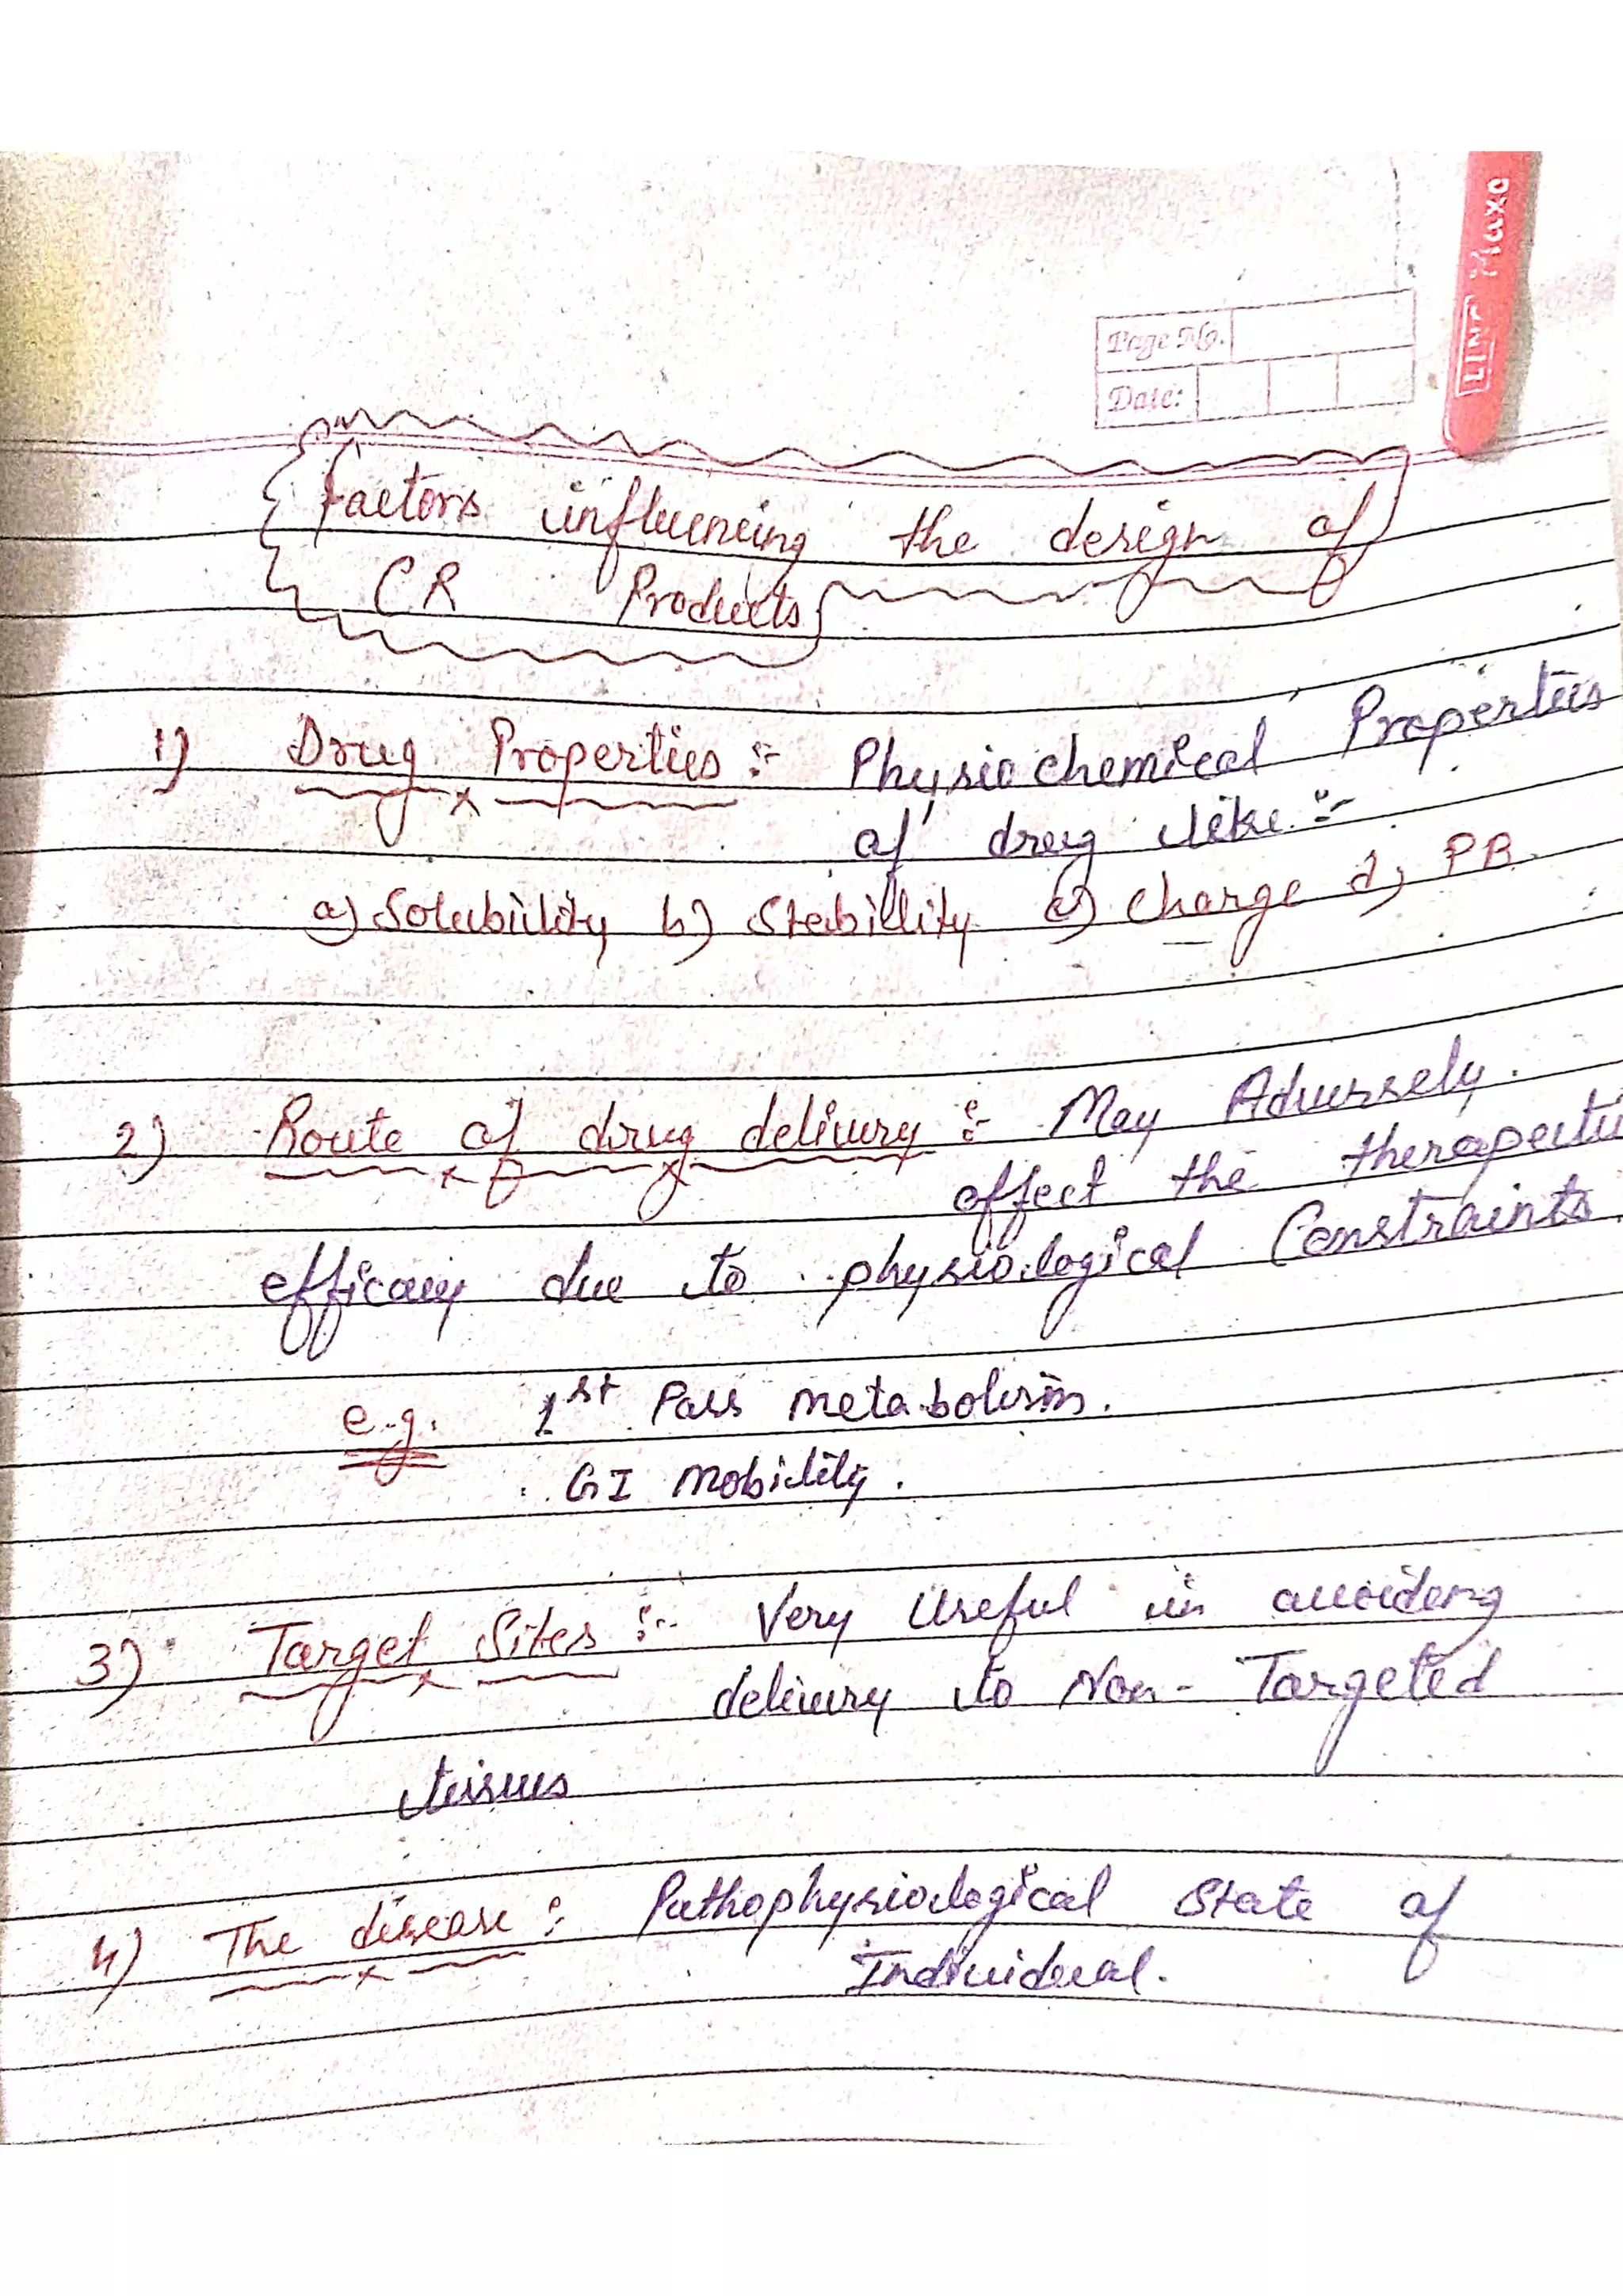 LINC Maxo
Page No.
Date:
Factors influencing the design of
CR Products
1) Drug Properties :- Physiochemical Properties
of drug like :-
a) Solubility b) Stability c) Charge d) PB
2) Route of drug delivery :- May Adversely
affect the therapeutic
efficacy due to physiological Constraints
e.g. 1st Pass metabolism.
GI mobility.
3) Target Sites :- Very Useful in avoiding
delivery to Non-Targeted
tissues
4) The disease :- Pathophysiological State of
Individual.